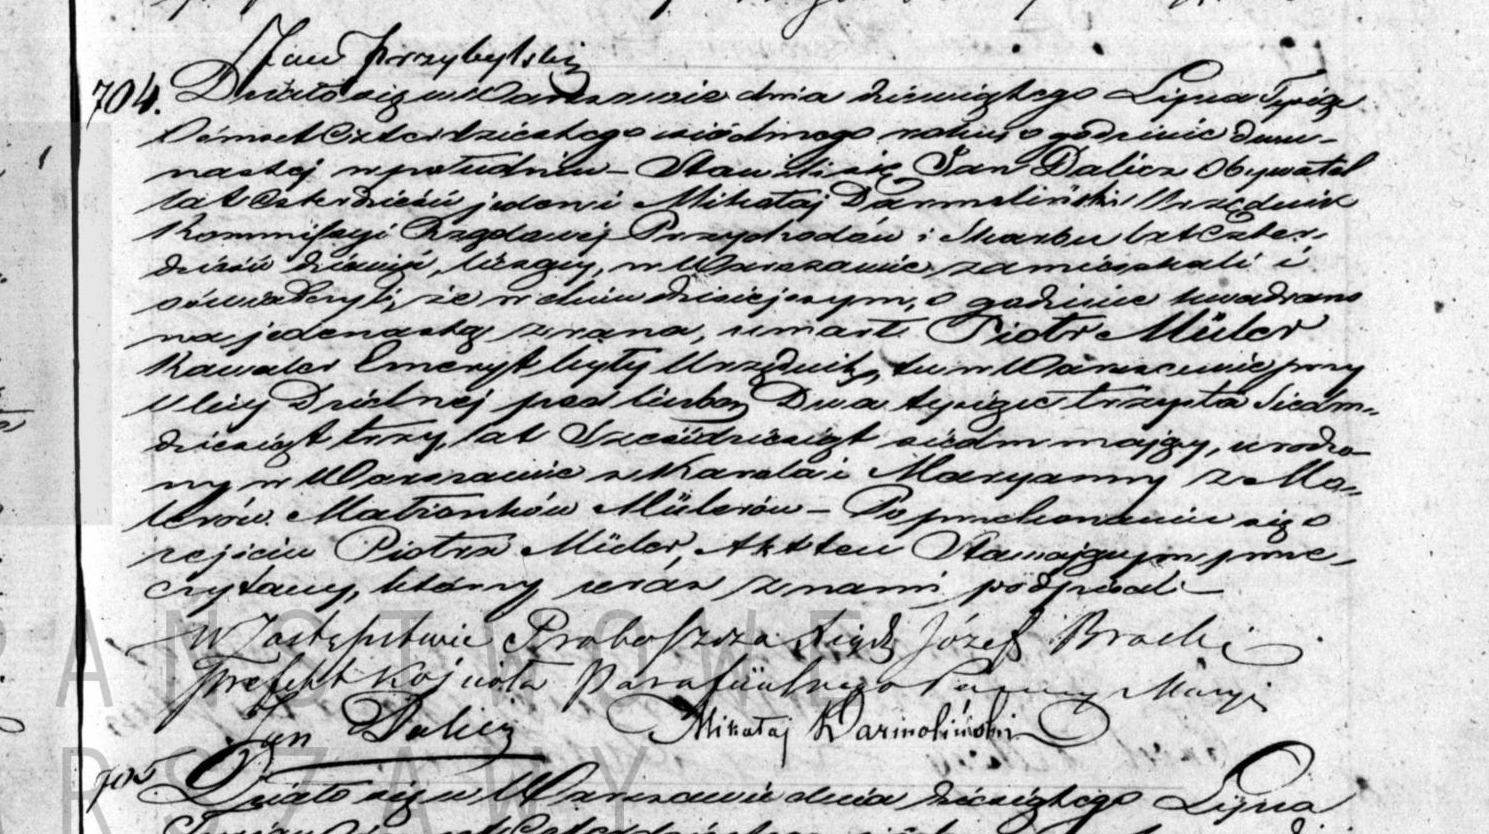 Jan Przybylski
704. Działo się w Warszawie dnia dziewiątego Lipca Tysiąc
Ośmset Czterdziestego siódmego roku, o godzinie dwu-
nastej w południe – Stawili się Jan Dalicz Obywatel
lat Czterdzieści jeden i Mikołaj Darmoliński Urzędnik
Kommissyi Rządowej Przychodów i Skarbu lat Czter-
dzieści dziewięć, liczący, w Warszawie zamieszkali i
oświadczyli, że w dniu dzisiejszym, o godzinie kwadrans
na jedenastą zrana, umarł Piotr Müler
Kawaler Emeryt były Urzędnik, tu w Warszawie przy
Ulicy Dzielnej pod liczbą Dwa tysiące trzysta siedm-
dziesiąt trzy, lat Sześćdziesiąt siedm mający, urodzo-
ny w Warszawie z Karola i Maryanny z Mo-
lerów Małżonków Mülerów – Po przekonaniu się o
zejściu Piotra Müler, Akt ten Stawającym prze-
czytany, który wraz z nami podpisali –
W Zastępstwie Proboszcza Xiądz Józef Bracki
Prefekt Kościoła Parafiialnego Panny Maryi
Jan Dalicz Mikołaj Darmoliński
705 Działo się w Warszawie dnia dziesiątego Lipca
PAŃSTWOWE
ARSZAWY